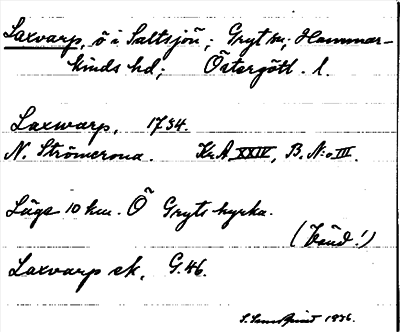 Laxvarp, ö i Saltsjön; Gryt sn; Hammar-
kinds hd; Östergötl. l.
Laxwarp, 1734.
N. Strömcrona. Kr.A XXIV, B. N:o III.
Läge 10 km. Ö Gryts kyrka.
(känd!)
Laxvarp ek, G.46.
1936.